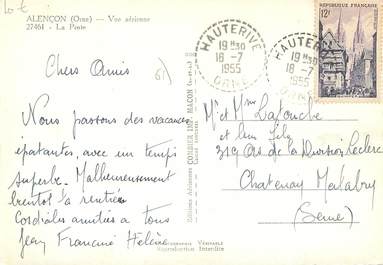 10 €
ALENÇON (Orne) — Vue aérienne
27461 - La Poste
61
HAUTERIVE
19 H30
18 -7
1955
ORNE
HAUTERIVE
19 H30
18 -7
1955
REPUBLIQUE FRANÇAISE
12F
Chers Amis
Nous passons des vacances
épatantes, avec un temps
superbe. Malheureusement
bientôt la rentrée
Cordiales amitiés à tous
Jean Francine Hélène
Editions Aériennes COMBIER IMP. MACON
Mr et Mme Latouche
et leur fils
319 Av de la Division Leclerc
Chatenay Malabry
(Seine)
Véritable
Reproduction Interdite